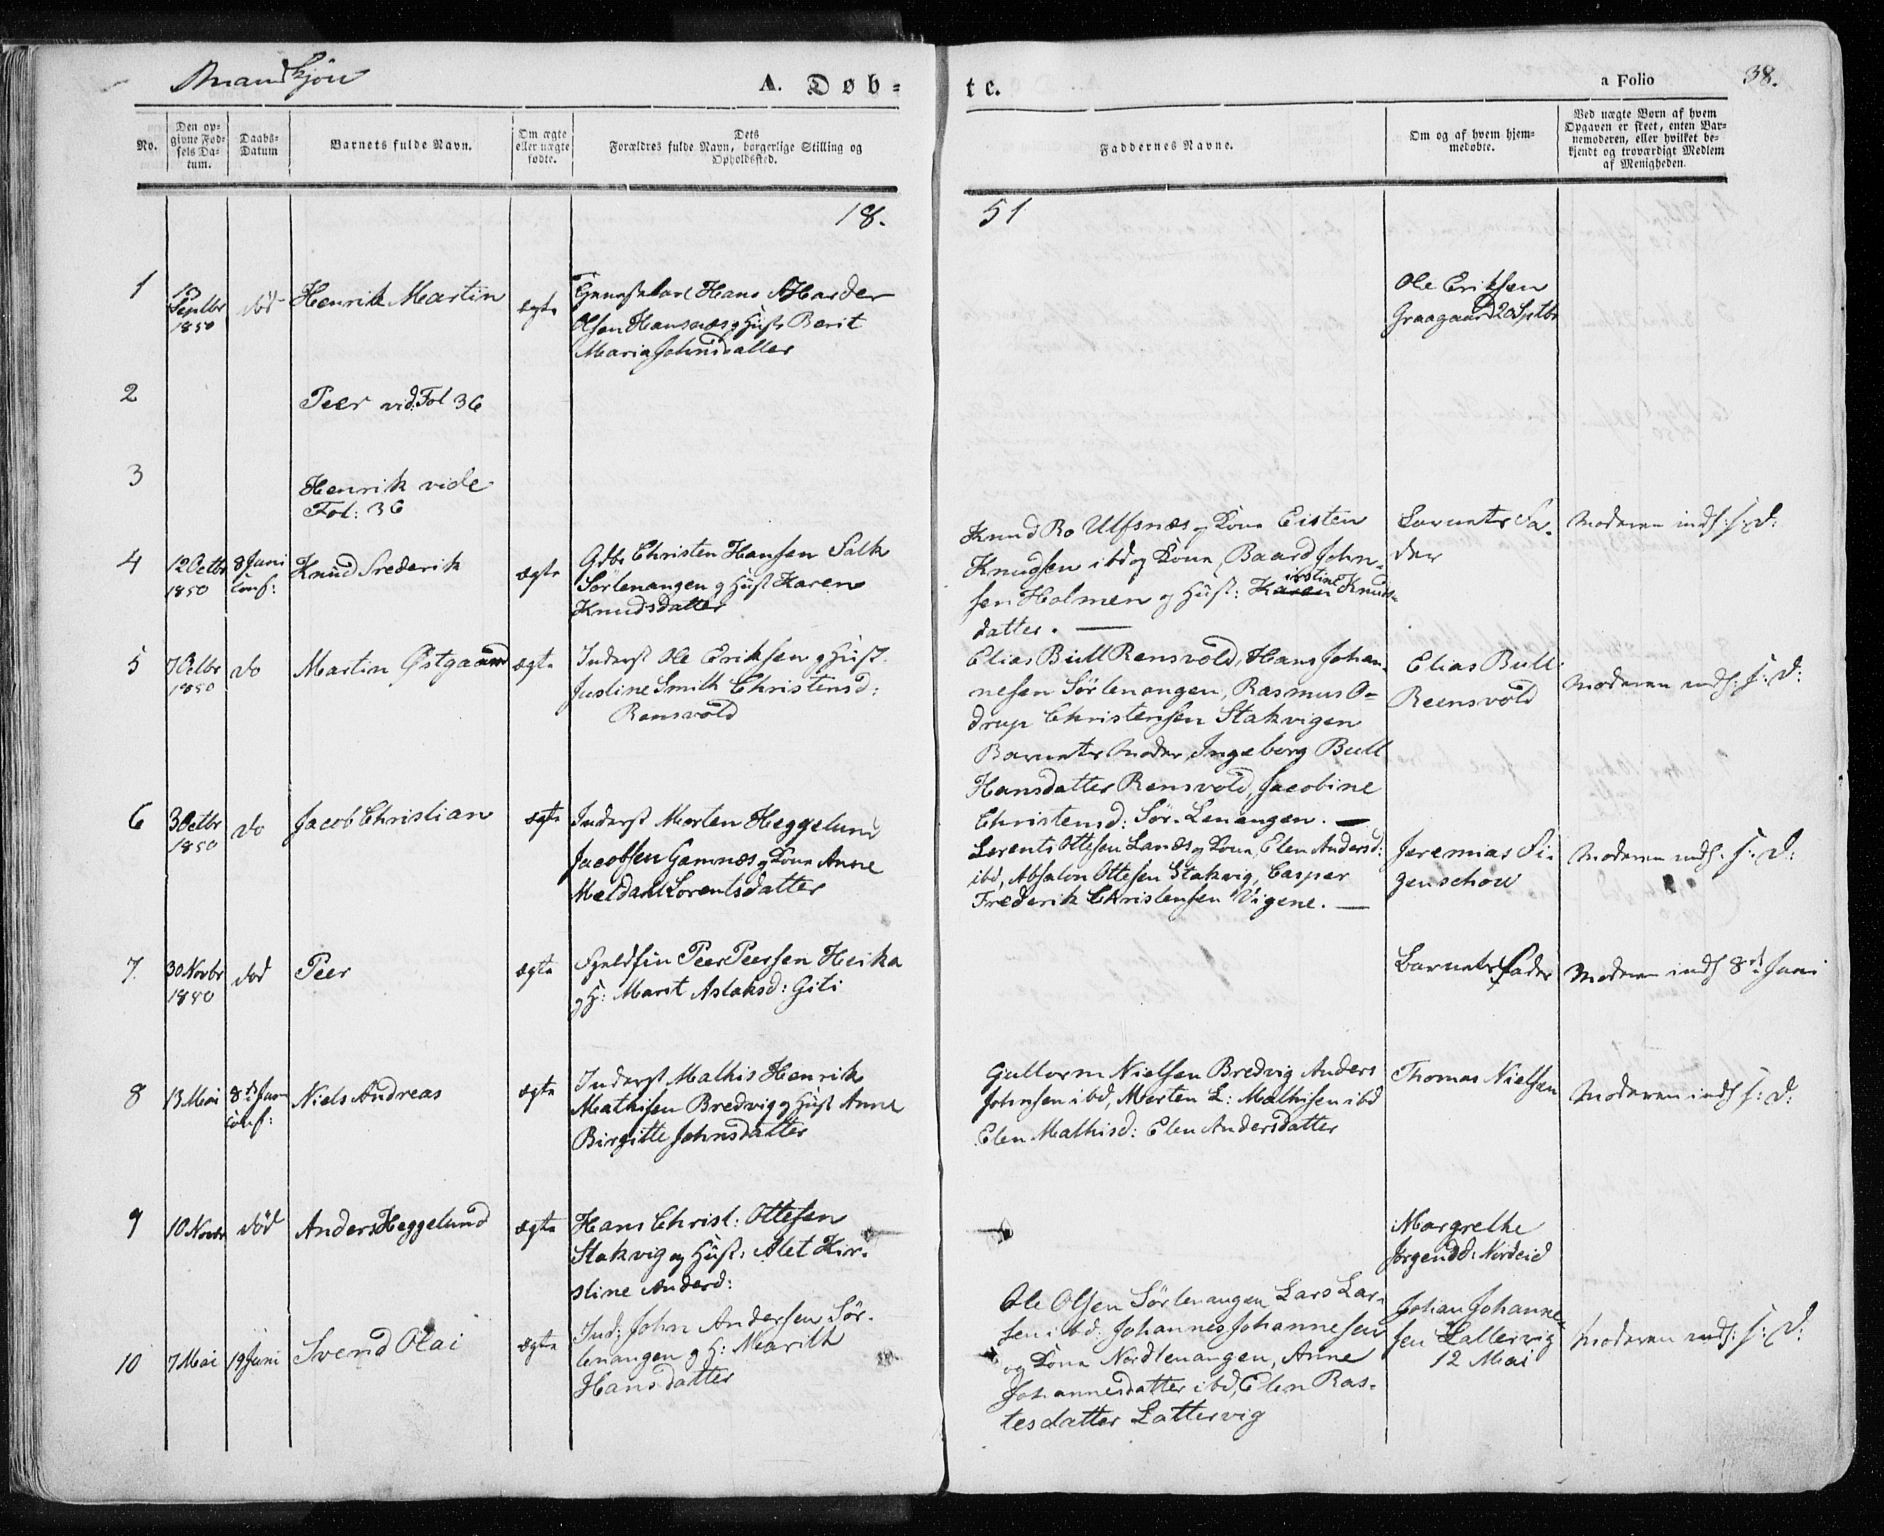 Mandkjøn
A. Døb-
te.
a Folio
38.
No.
Den op-
givne Fød-
sels Da-
tum.
Daabs-
Datum
Barnets fulde Navn.
Om ægte
eller uægte
fødte.
Dets
Forældres fulde Navn, borgerlige Stilling og
Opholdssted.
Faddernes Navne.
Om og af hvem hjem-
medøbte.
Ved uægte Børn af hvem
Opgaven er skeet, enten Bar-
nemoderen, eller hvilket be-
kjendt og troværdigt Medlem
af Menigheden.
18.
51
1
Septbr
1850
død
Henrik Martin
ægte
Hans A Harder
Olsen Hansnæs og Hust Berit
Maria Johnsdatter
Ole Eriksen
Graagaard 20 Sptbr
2
Peer vid. Fol 36
3
Henrik vide
Fol: 36
4
12 Octbr
1850
8 Juni
conf:
Knud Frederik
ægte
Gdbr Christen Hansen Falk
Sørlenangen og Hust Karen
Knudsdatter
Knud Bo Ulfsnæs og Kone Eisten
Knudsen ibd og Kone Baard John-
sen Holmen og Hust: Karen irstine Knuds-
datter.
Barnets Fa-
der
Moderen indl: s: D:
5
7 Octbr
1850
do
Martin Østgaard
ægte
Inderst Ole Eriksen og Hust.
Justine Smith Christensd:
Rensvold
Elias Bull Rensvold, Hans Johan-
nesen Sørlenangen, Rasmus O-
drup Christensen Stakvigen
Barnets Moder, Ingeborg Bull
Hansdatter Rensvold, Jacobine
Christensd: Sør-Lenangen.
Elias Bull
Reensvold
Moderen indl: s: D:
6
3 Octbr
1850
do
Jacob Christian
ægte
Inderst Morten Heggelund
Jacobsen Gamnæs og Kone Anne
Meldahl Lorentsdatter
Lorents Ottesen Lanæs og Kone, Elen Andersd:
ibd, Absalon Ottesen Stakvig, Casper
Frederik Christensen Vigene.
Jeremias Fi-
genschou
Moderen indl: s: D:
7.
30 Novbr
1850
død
Peer
ægte
Fjeldfin Peer Peersen Heika
og H: Marit Aslaksd: Giti
Barnets Fader
Moderen indl 8de Juni
8
13 Mai
8de Juni
conf:
Niels Andreas
ægte
Inderst Mathis Henrik
Mathisen Bredvig og Hust Anne
Birgitte Johnsdatter
Guttorm Nielsen Bredvig Anders
Johnsen ibd, Morten L: Mathisen ibd
Elen Mathisd: Elen Andersdatter
Thomas Nielsen
Moderen indl s: D:
9
10 Novbr
død
Anders Heggelund
ægte
Hans Christ: Ottesen
Stakvig og Hust: Alet Kir-
stine Andersd:
Margrethe
Jørgensd: Nordeid
10
7 Mai
19 Juni
Svend Olai
ægte
Ind: John Andersen Sør-
lenangen og H: Marith
Hansdatter
Ole Olsen Sørlenangen Lars Lar-
sen ibd: Johannes Johannesen
og Kone Nordlenangen, Anne
Johannesdatter ibd, Elen Ras-
tesdatter Lattervig
Johan Johanne-
sen Lattervig
12 Mai
Moderen indl: s: D: